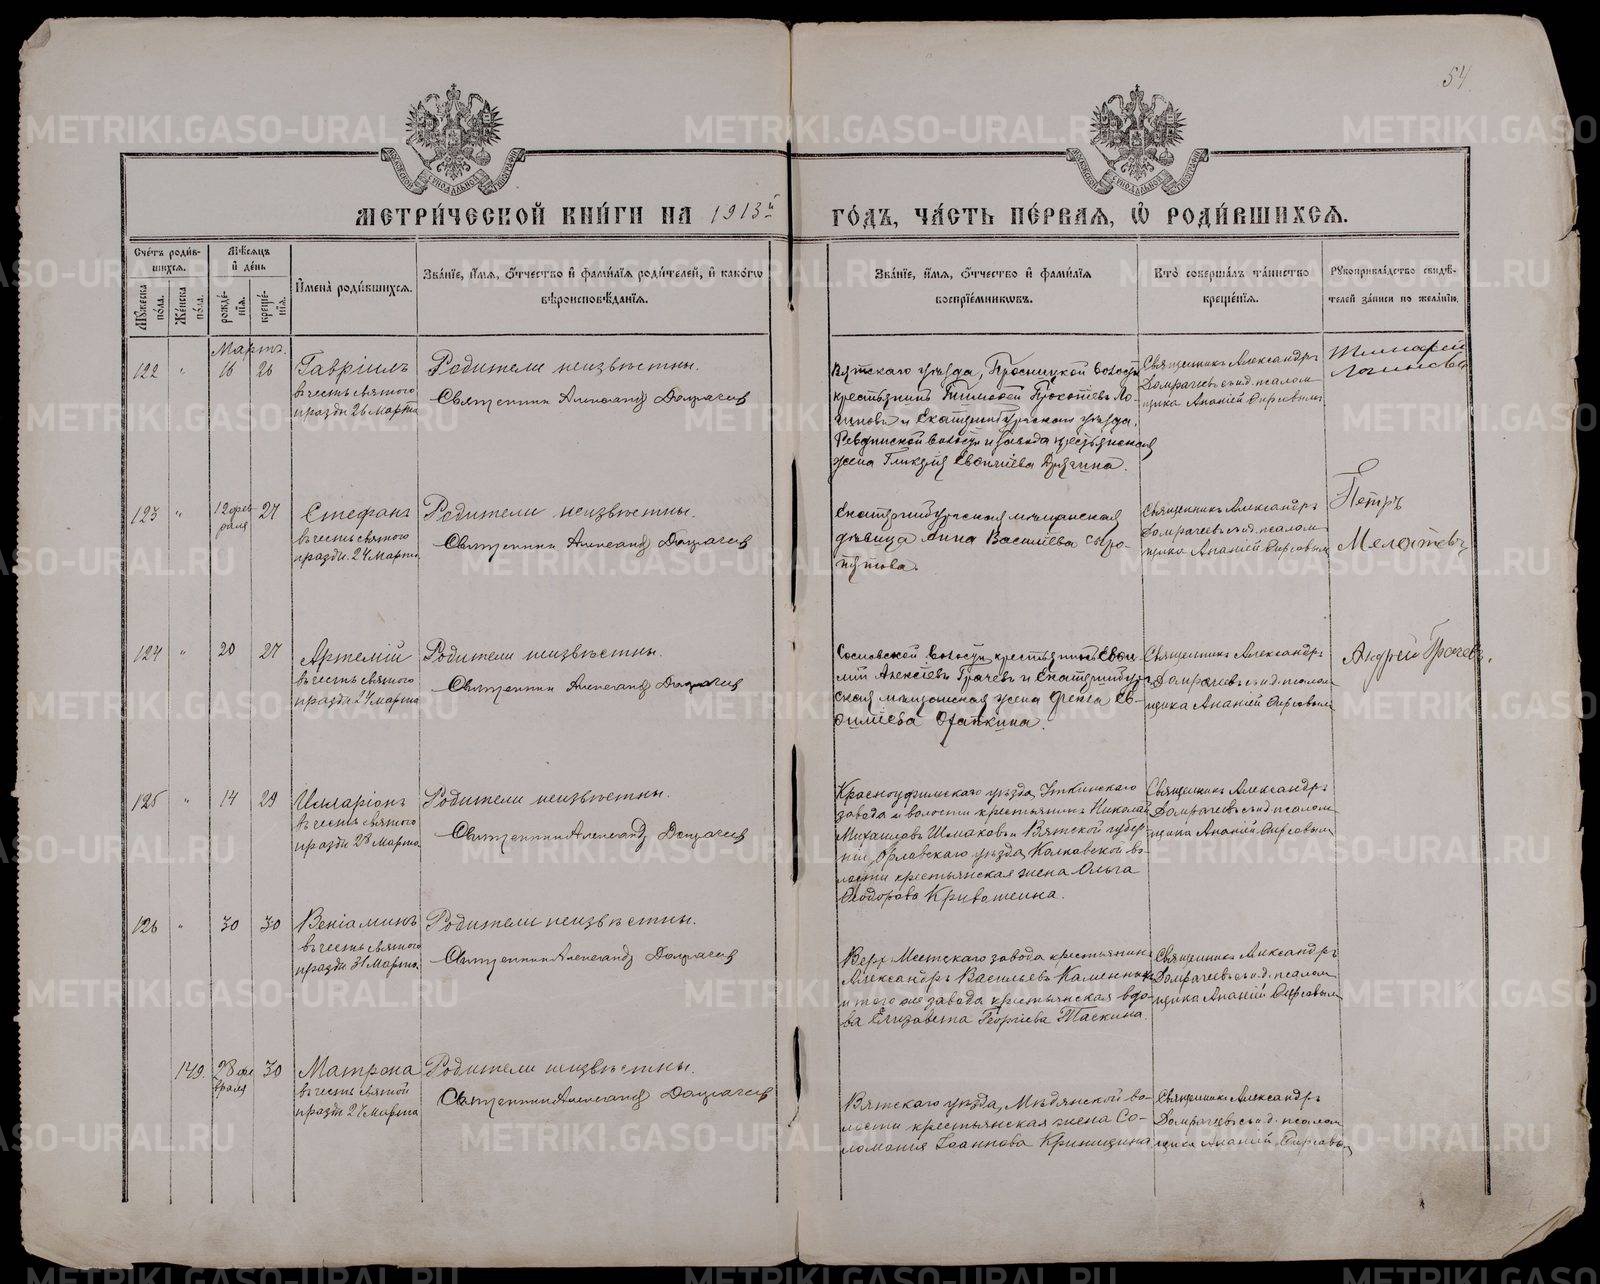 54
МЕТРИ́ЧЕСКОЙ КНИ́ГИ НА 1913й ГО́ДЪ, ЧА́СТЬ ПЕ́РВАЯ, Ѡ РОДИ́ВШИХСЯ.
Сче́тъ роди́в-
шихся.
Мꙋжеска по́ла.
Же́нска по́ла.
Мѣ́сяцъ и́ де́нь
рожде́нїя.
креще́нїя.
И́мена̀ роди́вшихся.
Зва́нїе, и́мя, ѻ́тчество и́ фами́лїя роди́телей, и́ како́гѡ
вѣроисповѣ́данїя.
Зва́нїе, и́мя, ѻ́тчество и́ фами́лїя
воспрїе́мниковъ.
Кто̀ соверша́лъ та́инство
креще́нїя.
Рꙋкоприкла́дство свидѣ́-
телей за́писи по жела́нїю.
Мартъ.
122 " 16 26 Гавріилъ
въ честь святого
праздн. 26 Марта
Родители неизвѣстны.
Священникъ Александръ Домрачевъ
Вятскаго уѣзда, Просницкой волости
крестьянинъ Тимофей Прокопіевъ Ло-
гиновъ и Екатеринбургскаго уѣзда,
Ревдинской волости и завода крестьянская
жена Гликерія
Священникъ Александръ
Домрачевъ съ и.д. псалом-
щика Ананіей
123 " 12 фев-
раля 27 Стефанъ
въ честь святого
праздн. 24 Марта
Родители неизвѣстны.
Священникъ Александръ Домрачевъ
Екатеринбургская мѣщанская
дѣвица Анна Васильева Сыро-
пятова.
Священникъ Александръ
Домрачевъ съ и.д. псалом-
щика Ананіей
Петръ
124 " 20 27 Артемій
въ честь святого
праздн. 24 Марта
Родители неизвѣстны.
Священникъ Александръ Домрачевъ
Сосновской волости крестьянинъ
Алексѣевъ Грачевъ и Екатеринбург-
ская мѣщанская жена
Священникъ Александръ
Домрачевъ съ и.д. псалом-
щика Ананіей
Андрей Грачевъ.
125 " 14 29 Илларіонъ
въ честь святого
праздн. 28 Марта
Родители неизвѣстны.
Священникъ Александръ Домрачевъ
Красноуфимскаго уѣзда, Уткинскаго
завода и волости крестьянинъ Николай
Михаиловъ Шмаковъ и Вятской губер-
ніи, Орловскаго уѣзда, во-
лости крестьянская жена Ольга
Ѳеодорова Кривошеина.
Священникъ Александръ
Домрачевъ съ и.д. псалом-
щика Ананіей
126 " 30 30 Веніаминъ
въ честь святого
праздн. 31 Марта.
Родители неизвѣстны.
Священникъ Александръ Домрачевъ
Верх-Исетскаго завода крестьянинъ
Александръ Васильевъ
и того же завода крестьянская вдо-
ва Елизавета Георгіева Таскина.
Священникъ Александръ
Домрачевъ съ и.д. псалом-
щика Ананіей
149. 28 фе-
враля 30 Матрона
въ честь святой
праздн. 27 Марта
Родители неизвѣстны.
Священникъ Александръ Домрачевъ
Вятскаго уѣзда, Медянской во-
лости крестьянская жена Со-
ломонія Іоаннова
Священникъ Александръ
Домрачевъ съ и.д. псалом-
щика Ананіей
METRIKI.GASO-URAL.RU